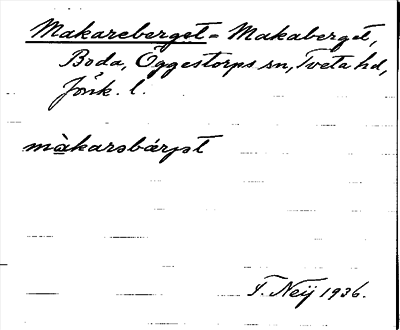 Makareberget = Makaberget,
Boda, Öggestorps sn, Tveta hd,
Jönk. l.
màkarsbárjət
F. Neij 1936.